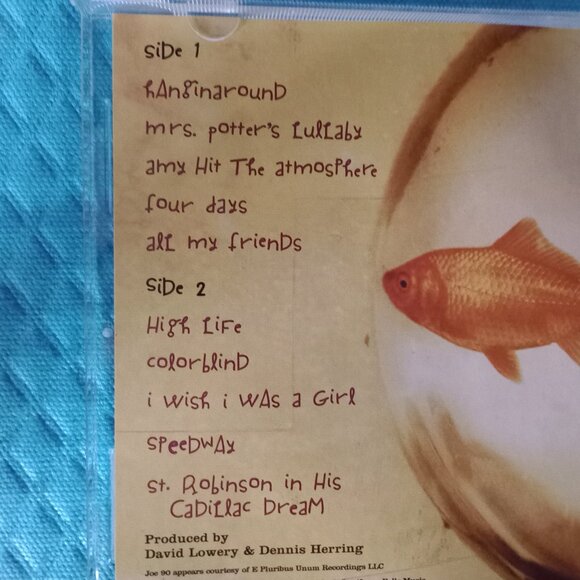 side 1
hanginaround
mrs. potter's Lullaby
amy Hit The atmosphere
four days
all my friends
side 2
High Life
colorblind
i wish i was a Girl
speedway
st. Robinson in His
Cadillac Dream
Produced by
David Lowery & Dennis Herring
Joe 90 appears courtesy of E Pluribus Unum Recordings LLC